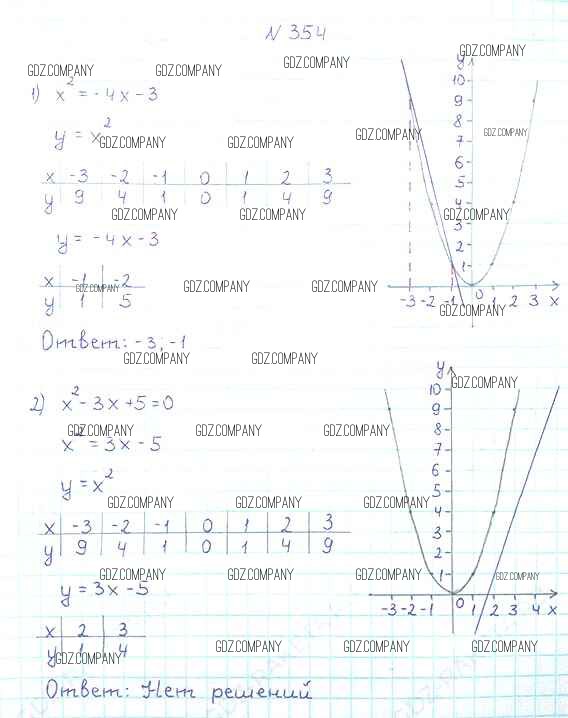 N 354
GDZ.COMPANY
GDZ.COMPANY GDZ.COMPANY GDZ.COMPANY
1) x² = -4x - 3
y = x²
GDZ.COMPANY GDZ.COMPANY GDZ.COMPANY GDZ.COMPANY
x -3 -2 -1 0 1 2 3
y 9 4 1 0 1 4 9
GDZ.COMPANY GDZ.COMPANY GDZ.COMPANY
y = -4x - 3
x -1 -2
GDZ.COMPANY GDZ.COMPANY GDZ.COMPANY
y 1 5
y
10
9
8
7
6
5
4
3
2
1
-3 -2 -1 0 1 2 3 x
GDZ.COMPANY
Ответ: -3; -1
GDZ.COMPANY GDZ.COMPANY
2) x² - 3x + 5 = 0
GDZ.COMPANY
GDZ.COMPANY GDZ.COMPANY GDZ.COMPANY
x² = 3x - 5
y = x²
GDZ.COMPANY GDZ.COMPANY GDZ.COMPANY
x -3 -2 -1 0 1 2 3
y 9 4 1 0 1 4 9
GDZ.COMPANY GDZ.COMPANY GDZ.COMPANY GDZ.COMPANY
y = 3x - 5
x 2 3
y 1 4
GDZ.COMPANY GDZ.COMPANY GDZ.COMPANY GDZ.COMPANY
y
10
9
8
7
6
5
4
3
2
1
-3 -2 -1 0 1 2 3 4 x
Ответ: Нет решений